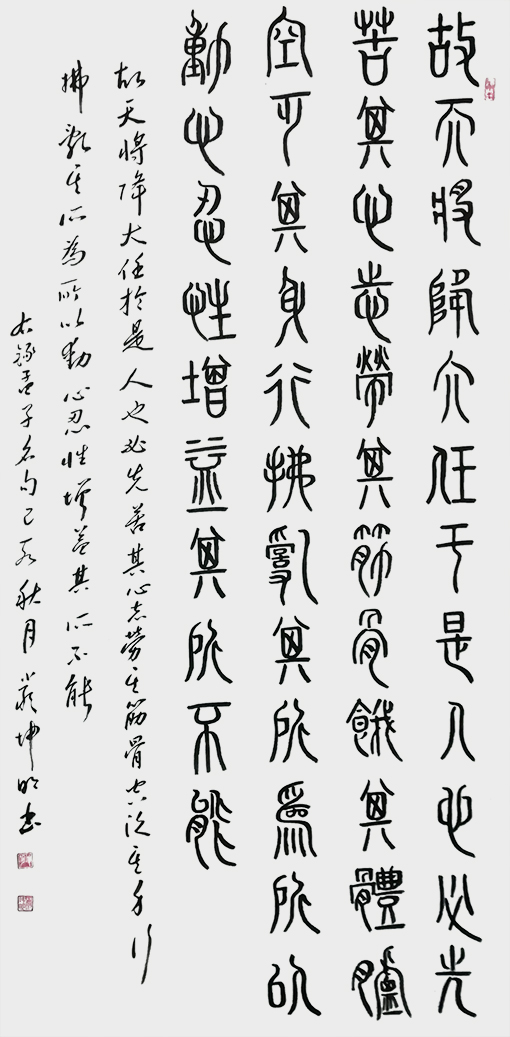 故天將降大任于是人也必先
苦其心志勞其筋骨餓其體膚
空乏其身行拂亂其所爲所以
動心忍性增益其所不能
故天將降大任於是人也必先苦其心志勞其筋骨空乏其身行
拂亂其所為所以動心忍性增益其所不能
右錄孟子名句己亥秋月坤明書